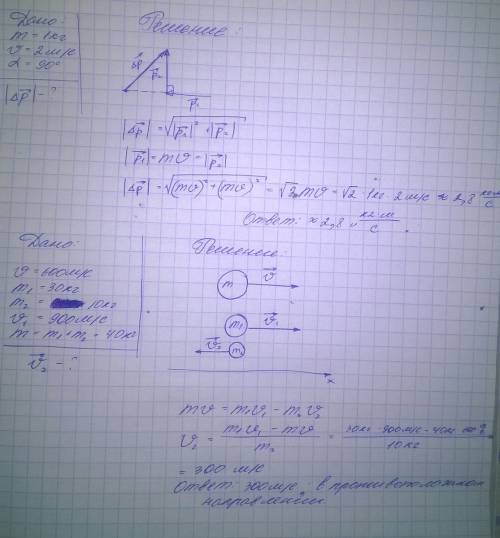 Дано:
m = 1кг
v = 2м/с
α = 90°
|Δp⃗| - ?
Решение:
Δp⃗
p⃗₂
p⃗₁
|Δp⃗| = √|p⃗₁|² + |p⃗₂|²
|p⃗₁| = mv = |p⃗₂|
|Δp⃗| = √(mv)² + (mv)² = √2 mv = √2 · 1кг · 2м/с ≈ 2,8 кг·м/с
Ответ: ≈ 2,8 кг·м/с.
Дано:
v = 600м/с
m₁ = 30кг
m₂ = 10кг
v₁ = 900м/с
m = m₁ + m₂ = 40кг
v⃗₂ - ?
Решение:
m v⃗
m₁ v⃗₁
v⃗₂ m₂
x
mv = m₁v₁ - m₂v₂
v₂ = (m₁v₁ - mv)/m₂ = (30кг · 900м/с - 40кг)/10кг
= 300 м/с
Ответ: 300м/с, в противоположном
направлении